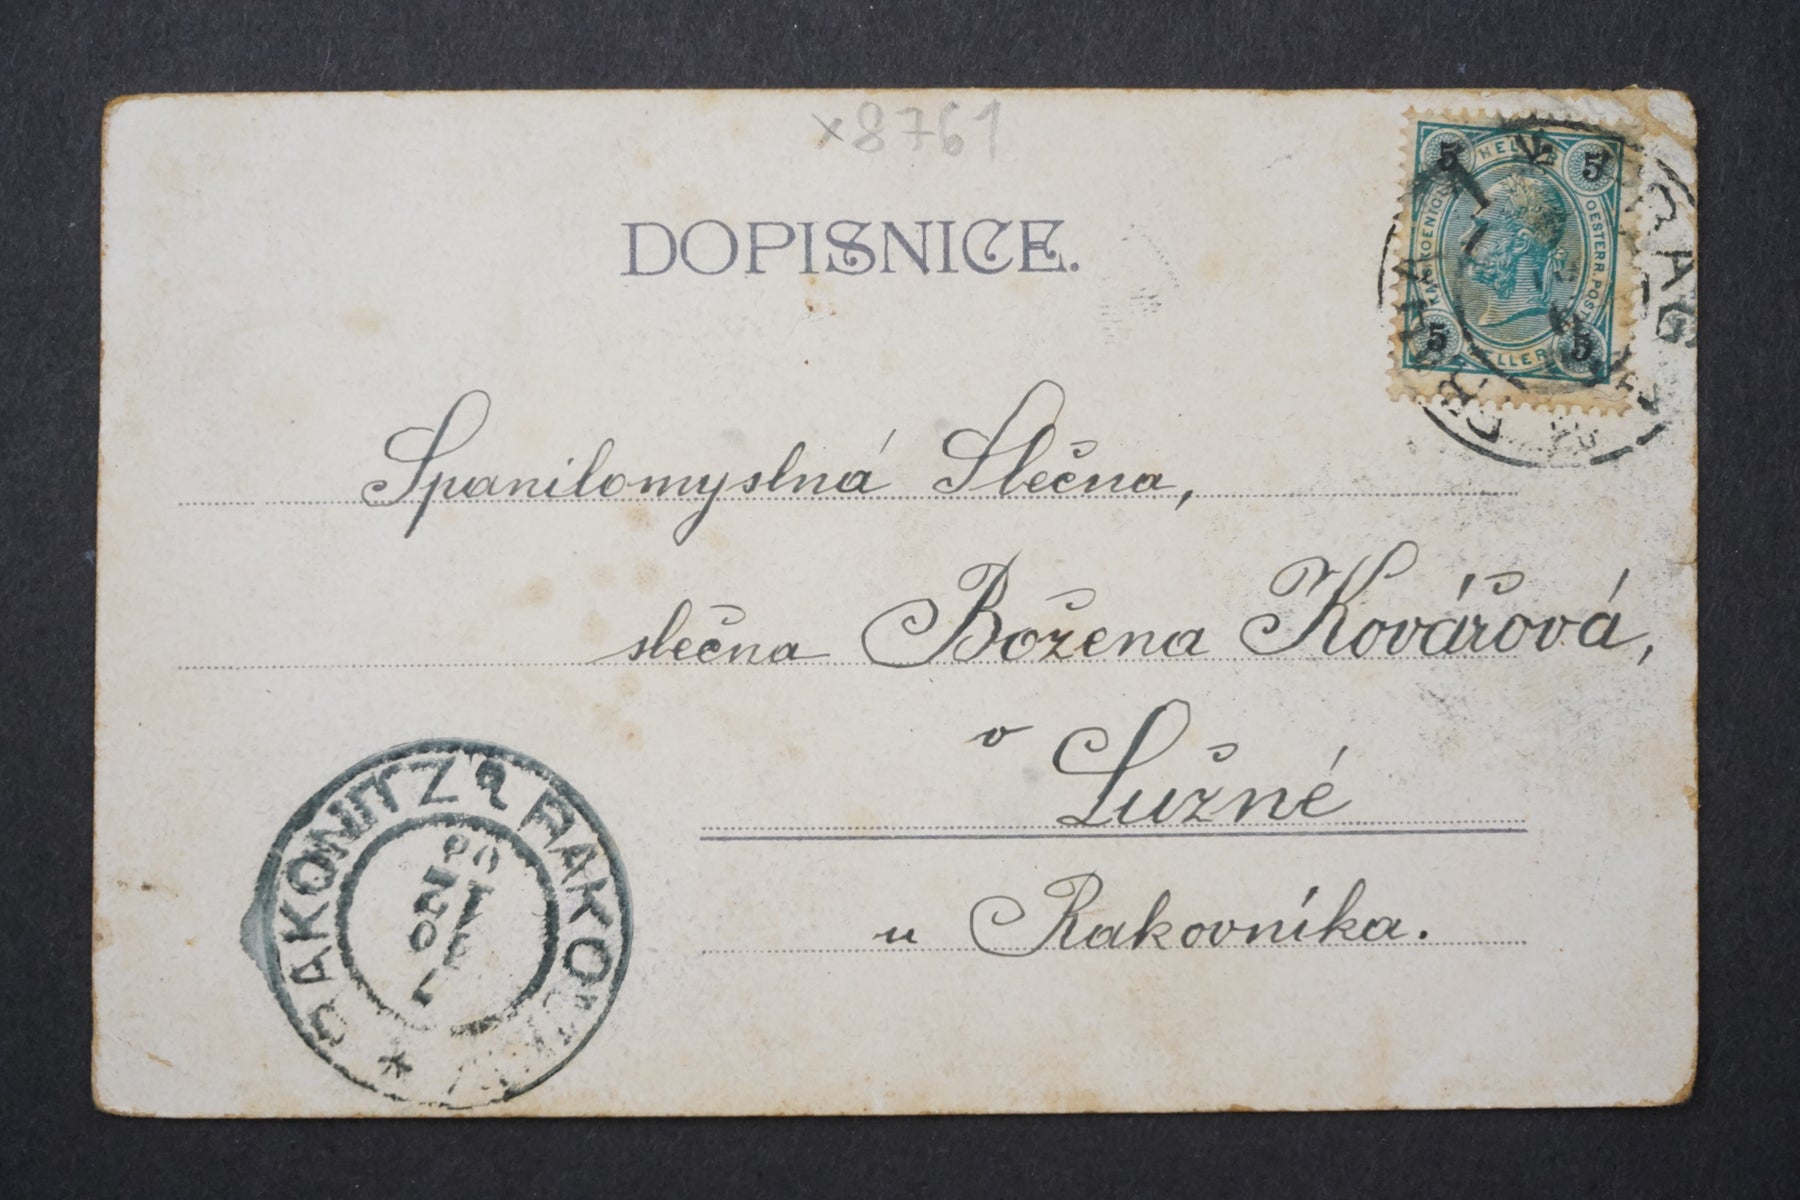 ×8761
DOPISNICE.
5 HELLER 5
KAIS. KOENIGL. OESTERR. POST
5 HELLER 5
PRAG
PRAHA
Spanilomyslná Slečna,
slečna Božena Kovářová,
v Lužné
u Rakovníka.
RAKONITZ RAKO